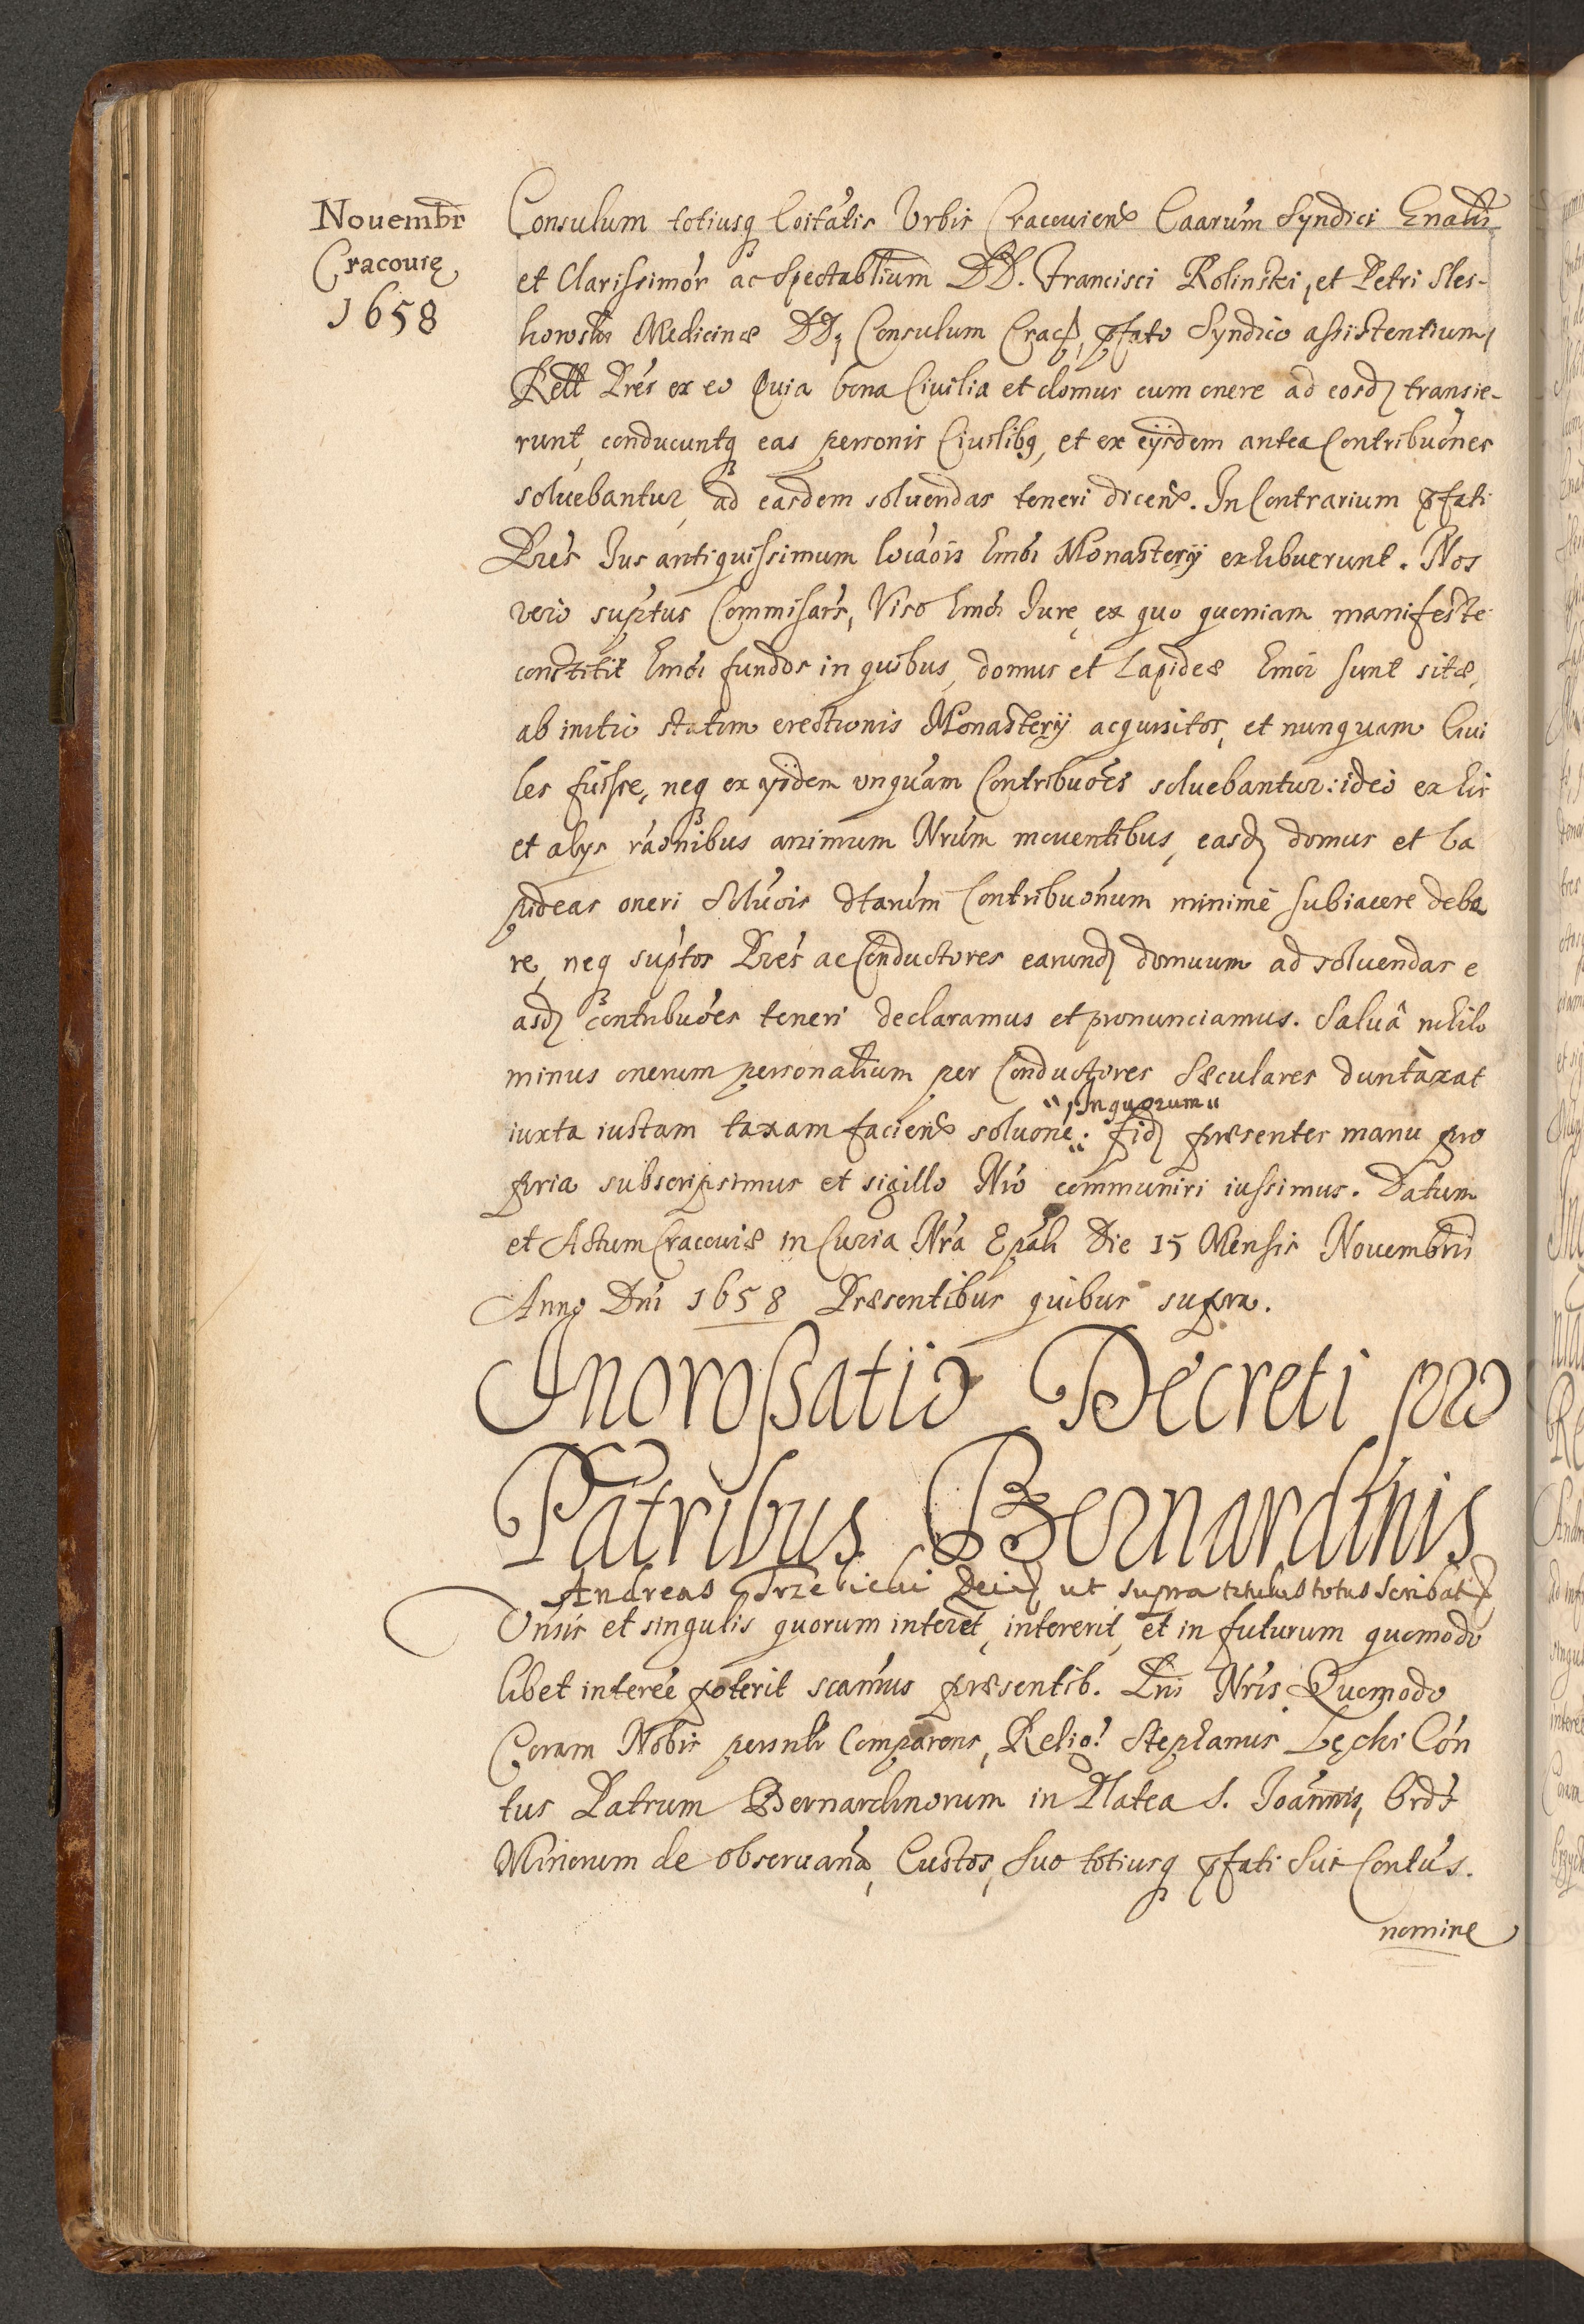 Nouembr
Cracouię
1658
Consulum totiusq Coitatis Urbis Cracouien Caarum Syndici
et Clarissimor ac Spectabilium DD. Francisci Rolinski, et Petri Sles-
kowski Medicinæ DD, Consulum Crac, pfato Syndico assistentium,
Rell Pres ex eo Quia bona Ciuilia et domus cum onere ad eosd transie-
runt, conducuntq eas personis Ciuilibq, et ex eijsdem antea Contribuones
soluebantur, ad easdem soluendas teneri dicen. In Contrarium pfati
Pres Jus antiquissimum locaois Emoi Monasterij exhibuerunt. Nos
vero suptus Commisars, Viso Emoi Jure, ex quo quoniam manifeste
constitit Emoi fundos in quibus, domus et Lapideæ Emoi sunt sitæ,
ab initio statim erectionis Monasterij acquisitos, et nunquam Ciui
les fuisse, neq ex ijsdem unquam Contribuoes soluebantur: ideo ex his
et alijs raonibus animum Nrum mouentibus, easd domus et La
pideas oneri Soluois dtarum Contribuonum minimè subiacere debe
re, neq suptos Pres ac Conductores earund domuum ad soluendas e
asd contribuoes teneri declaramus et pronunciamus. Saluâ nihilo
minus onerum personalium per Conductores Sæculares duntaxat
" In quorum "
iuxta iustam taxam facien soluone: fid præsentes manu pro
pria subscripsimus et sigillo Nro communiri iussimus. Datum
et Actum Cracouiæ in Curia Nra Epali Die 15 Mensis Nouembris
Anno Dni 1658 Præsentibus quibus supra.
Ingrossatio Decreti pro
Patribus Bernardinis
Andreas Trzebicki Dei ut supra titulus totus scribati
Uniis et singulis quorum interet, intererit, et in futurum quomodo
libet interee poterit scamus præsentib. Pni Nris Quomodo
Coram Nobis personlr Comparens, Relio: Stephanus Lęcki Con
tus Patrum Bernardinorum in Platea S. Joannis, Ord
Minorum de obseruana, Custos, Suo totiusq pfati Sui Contus.
nomine